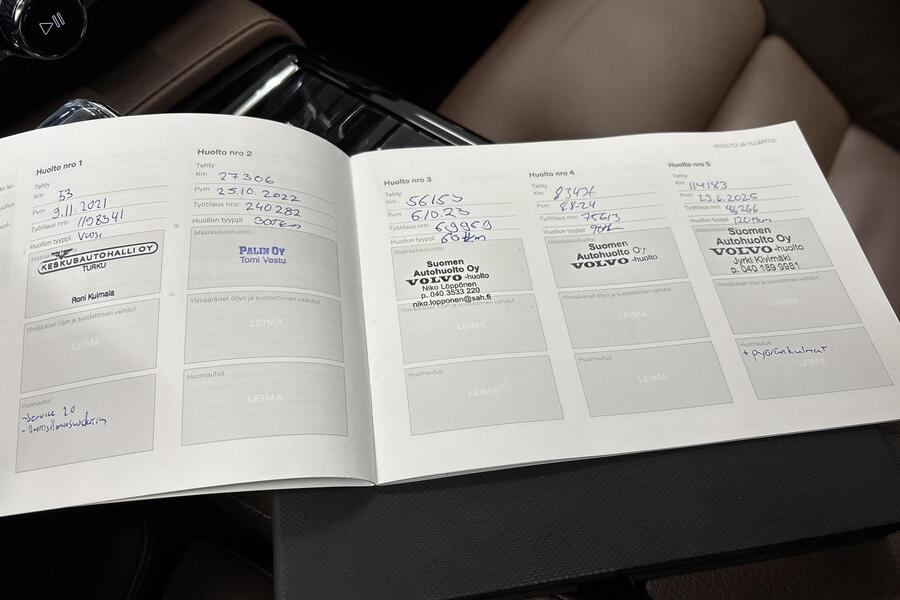 Huolto nro 1
Tehty
Km 53
Pvm 9.11.2021
Työtilaus nro: 1198341
Huollon tyyppi Vuosi
KESKUSAUTOHALLI OY
TURKU
Roni Kulmala
Ylimääräiset öljyn ja suodattimen vaihdot
LEIMA
Huomautus
-Service 2.0
Huolto nro 2
Tehty
Km 27306
Pvm 25.10.2022
Työtilaus nro: 240282
Huollon tyyppi 30tkm
Määräaikaishuolto
PALIN OY
Tomi Vestu
Ylimääräiset öljyn ja suodattimen vaihdot
LEIMA
Huomautus
LEIMA
HUOLTO JA YLLÄPITO
Huolto nro 3
Tehty
Km 56153
Pvm 6.10.23
Työtilaus nro: 69969
Huollon tyyppi 60tkm
Määräaikaishuolto
Suomen
Autohuolto Oy
VOLVO-huolto
Niko Löppönen
p. 040 3533 220
niko.lopponen@sah.fi
Ylimääräiset öljyn ja suodattimen vaihdot
LEIMA
Huomautus
LEIMA
Huolto nro 4
Tehty
Km 83436
Pvm 8.8.24
Työtilaus nro: 75613
Huollon tyyppi 90tkm
Määräaikaishuolto
Suomen
Autohuolto Oy
VOLVO-huolto
Ylimääräiset öljyn ja suodattimen vaihdot
LEIMA
Huomautus
LEIMA
Huolto nro 5
Tehty
Km 114183
Pvm 23.6.2025
Työtilaus nro: 86266
Huollon tyyppi 120tkm
Suomen
Autohuolto Oy
VOLVO-huolto
Jyrki Kivimäki
p. 040 189 9981
Ylimääräiset öljyn ja suodattimen vaihdot
LEIMA
Huomautus
+ pyöränkulmat
LEIMA